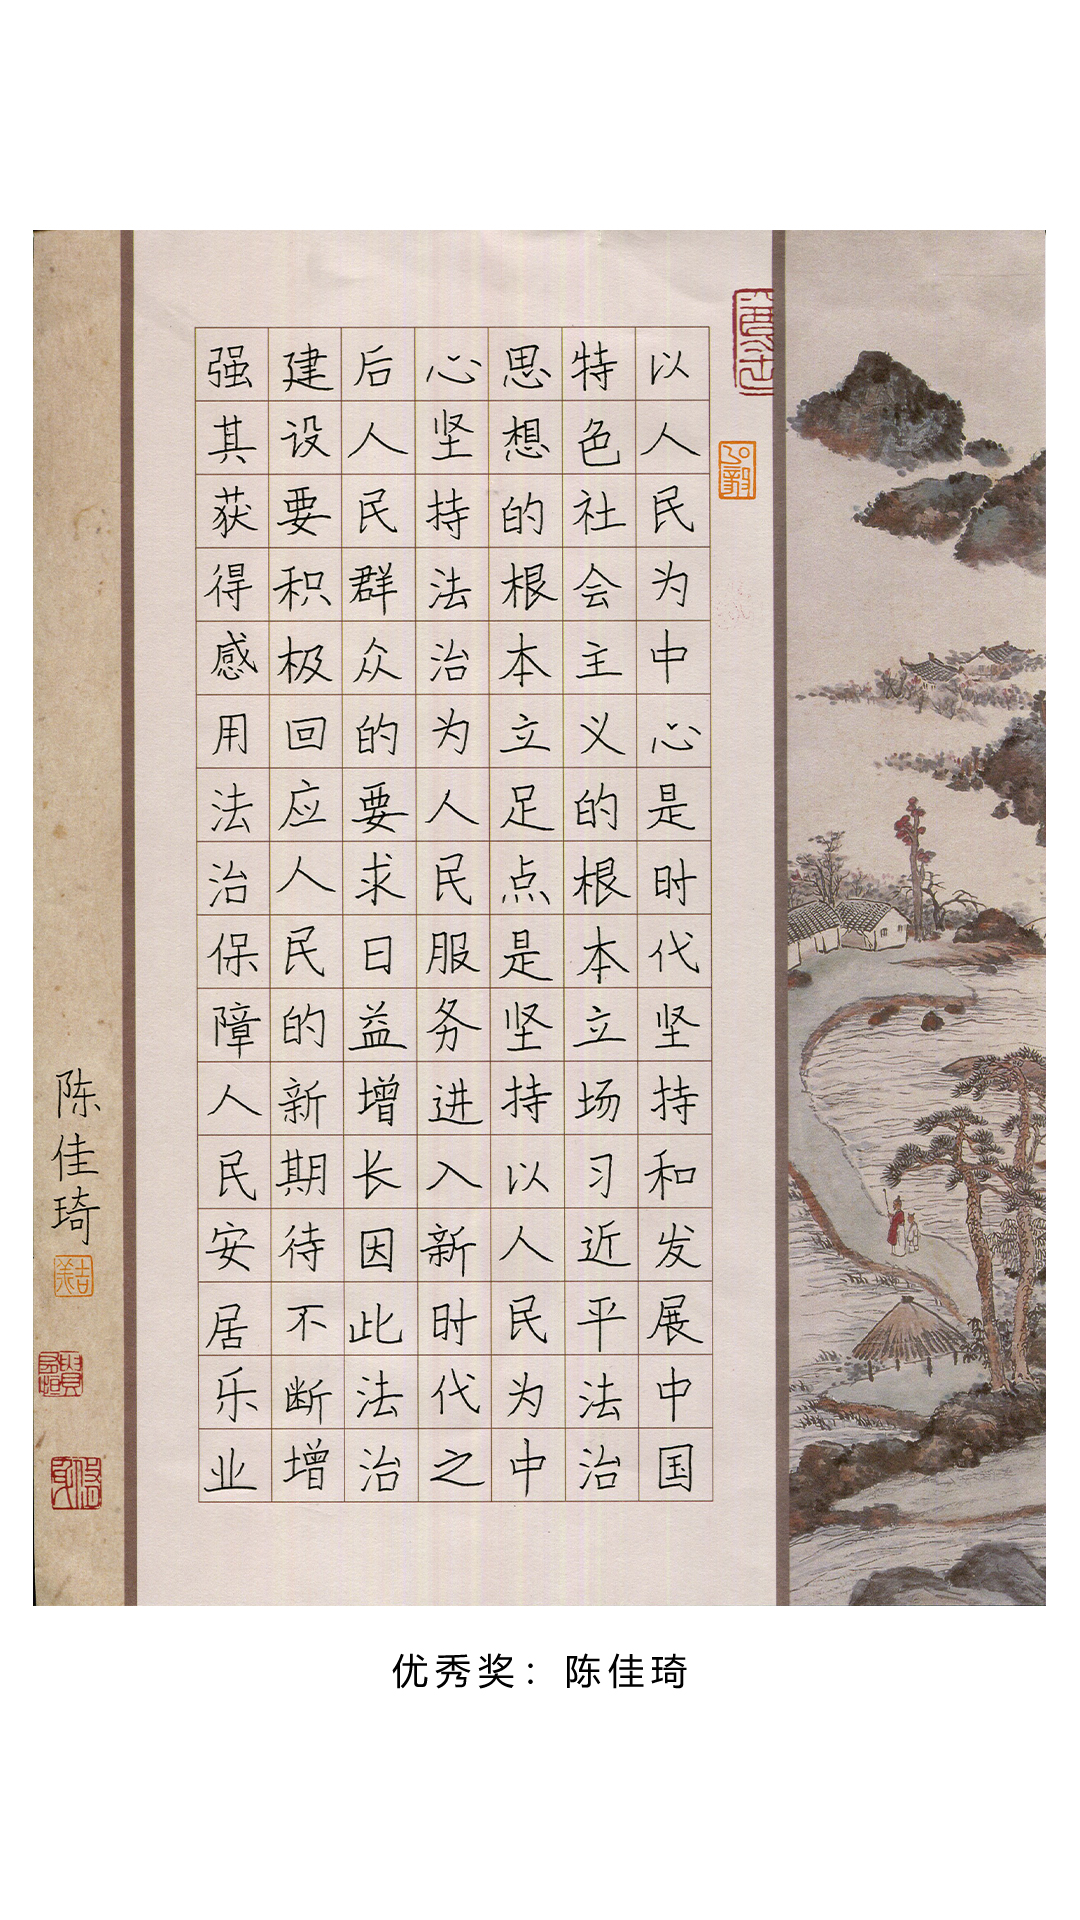 以人民为中心是时代坚持和发展中国
特色社会主义的根本立场习近平法治
思想的根本立足点是坚持以人民为中
心坚持法治为人民服务进入新时代之
后人民群众的要求日益增长因此法治
建设要积极回应人民的新期待不断增
强其获得感用法治保障人民安居乐业
陈佳琦
优秀奖：陈佳琦